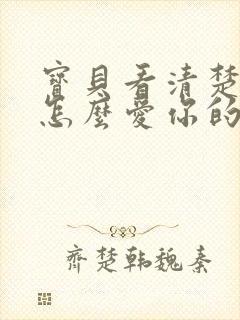 寶貝看清楚
怎麼愛你的
齊楚韓魏秦